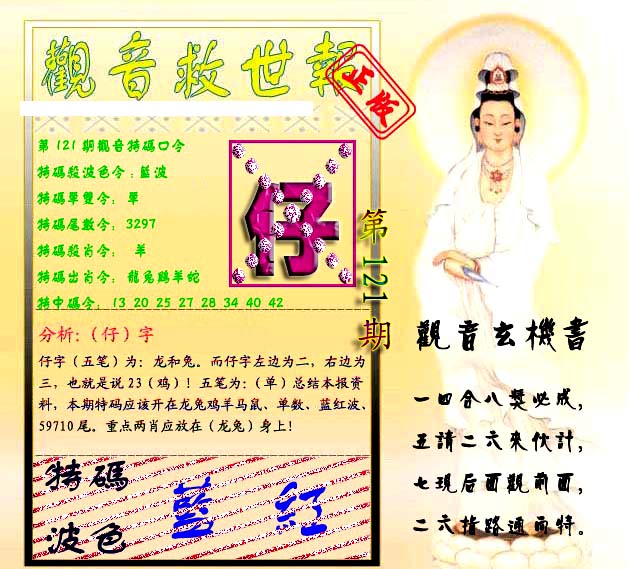 觀音救世報
正版
第121期觀音特碼口令
特碼殺波色令:藍波
特碼單雙令: 單
特碼尾數令: 3297
特碼殺肖令: 羊
特碼出肖令: 龍兔鷄羊蛇
特中碼令: 13 20 25 27 28 34 40 42
仔
第121期
分析:(仔)字
仔字(五笔)为:龙和兔。而仔字左边为二,右边为
三,也就是说23(鸡)!五笔为:(单)总结本报资
料,本期特码应该开在龙兔鸡羊马鼠、单数、蓝红波、
59710尾。重点两肖应放在(龙兔)身上!
特碼
波色
藍 紅
觀音玄機書
一四合八獎必成,
五請二六來伙計,
七現后面觀前面,
二六指路通而特。